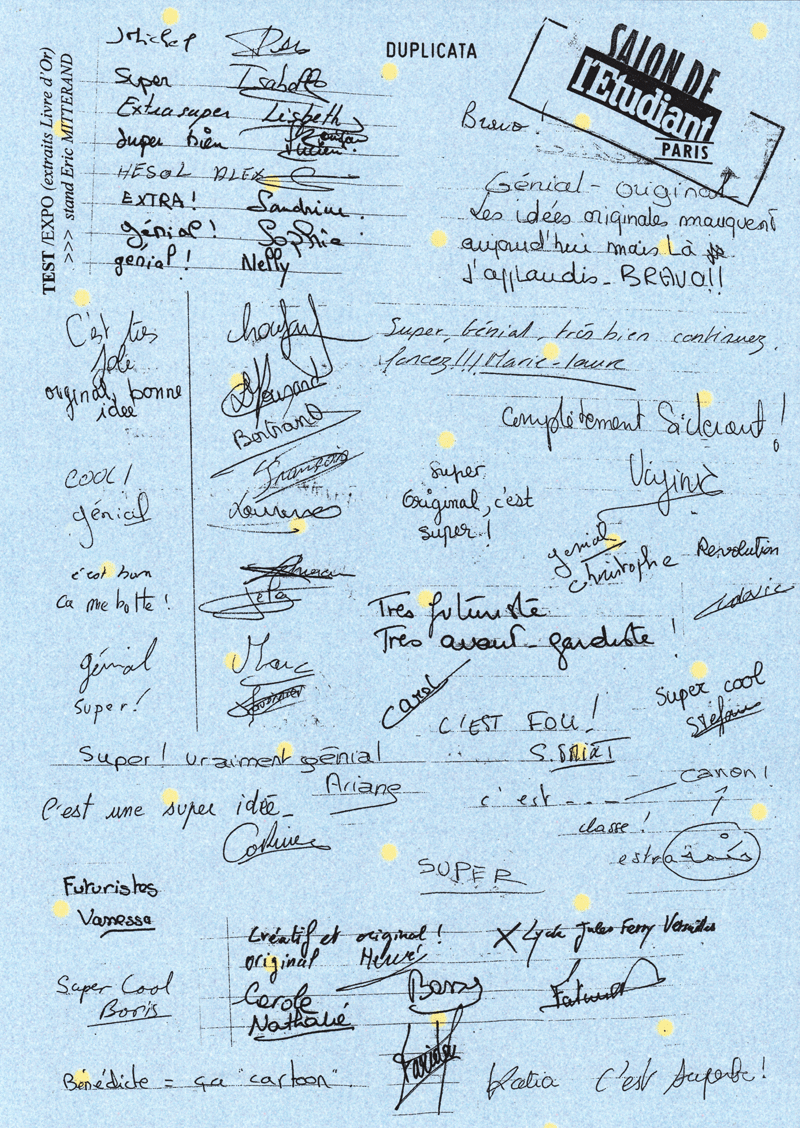 TEST /EXPO (extraits Livre d'Or)
>>> stand Eric MITTERAND
DUPLICATA
SALON DE
l'Etudiant
PARIS
Michel
Super Isabelle
Extra super Lisbeth
Super bien
HESOL ALEX
EXTRA! Sandrine
génial! Sophie
génial! Nelly
Bravo!
Génial - original
Les idées originales manquent
aujourd'hui mais là
J'applaudis - BRAVO!!
C'est très
joli
original, bonne
idée
Bertrand
Super, Génial, très bien continuez.
foncez!!! Marie-laure
Complètement Sidérant!
COOL! François
génial Laurence
Super
Original, c'est
super!
génial
Christophe
Révolution
c'est bon
Ca me botte!
Très futuriste
Très avant-gardiste!
génial Marc
Super!
Carol
C'EST FOU!
Super cool
Stéfan
Super! vraiment génial
Ariane
C'est une super idée_
Corinne
c'est ---
CANON!
classe!
extra
SUPER
Futuristes
Vanessa
Créatif et original!
original Hervé
Carole
Nathalie
X Lycée Jules Ferry Versailles
Super Cool
Boris
Bénédicte = ça "cartoon".
Katia C'est superbe!